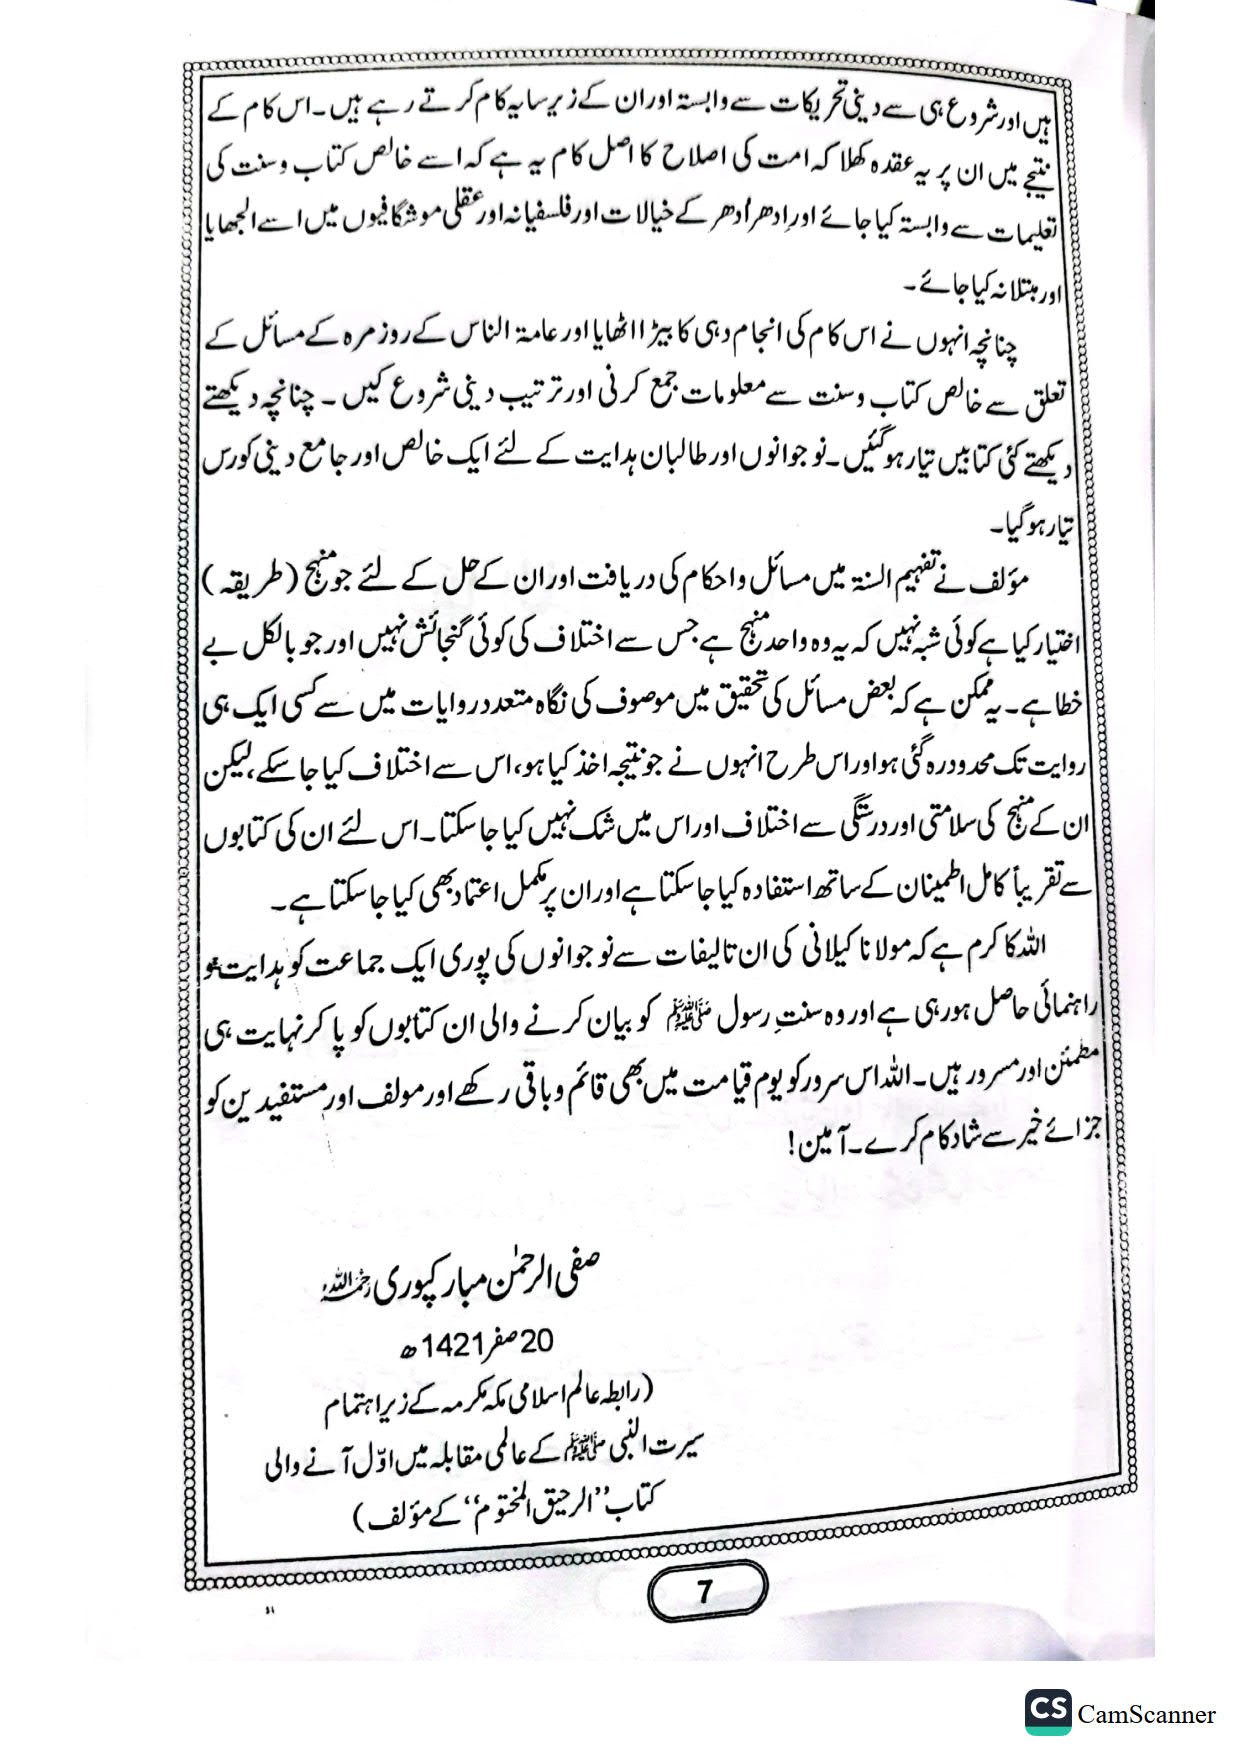 ہیں اور شروع ہی سے دینی تحریکات سے وابستہ اور ان کے زیر سایہ کام کرتے رہے ہیں۔ اس کام کے
نتیجے میں ان پر یہ عقدہ کھلا کہ امت کی اصلاح کا اصل کام یہ ہے کہ اسے خالص کتاب و سنت کی
تعلیمات سے وابستہ کیا جائے اور اِدھر اُدھر کے خیالات اور فلسفیانہ اور عقلی موشگافیوں میں اسے الجھایا
اور مبتلا نہ کیا جائے۔
چنانچہ انہوں نے اس کام کی انجام دہی کا بیڑا اٹھایا اور عامۃ الناس کے روزمرہ کے مسائل کے
تعلق سے خالص کتاب و سنت سے معلومات جمع کرنی اور ترتیب دینی شروع کیں۔ چنانچہ دیکھتے
دیکھتے کئی کتابیں تیار ہو گئیں۔ نوجوانوں اور طالبان ہدایت کے لئے ایک خالص اور جامع دینی کورس
تیار ہو گیا۔
مؤلف نے تفہیم السنۃ میں مسائل و احکام کی دریافت اور ان کے حل کے لئے جو منہج (طریقہ)
اختیار کیا ہے کوئی شبہ نہیں کہ یہ وہ واحد منہج ہے جس سے اختلاف کی کوئی گنجائش نہیں اور جو بالکل بے
خطا ہے۔ یہ ممکن ہے کہ بعض مسائل کی تحقیق میں موصوف کی نگاہ متعدد روایات میں سے کسی ایک ہی
روایت تک محدود رہ گئی ہو اور اس طرح انہوں نے جو نتیجہ اخذ کیا ہو، اس سے اختلاف کیا جا سکے، لیکن
ان کے منہج کی سلامتی اور درستگی سے اختلاف اور اس میں شک نہیں کیا جا سکتا۔ اس لئے ان کی کتابوں
سے تقریباً کامل اطمینان کے ساتھ استفادہ کیا جا سکتا ہے اور ان پر مکمل اعتماد بھی کیا جا سکتا ہے۔
اللہ کا کرم ہے کہ مولانا کیلانی کی ان تالیفات سے نوجوانوں کی پوری ایک جماعت کو ہدایت و
راہنمائی حاصل ہو رہی ہے اور وہ سنتِ رسول ﷺ کو بیان کرنے والی ان کتابوں کو پا کر نہایت ہی
مطمئن اور مسرور ہیں۔ اللہ اس سرور کو یوم قیامت میں بھی قائم و باقی رکھے اور مولف اور مستفیدین کو
جزائے خیر سے شاد کام کرے۔ آمین!
صفی الرحمٰن مبارکپوری رحمہ اللہ
20 صفر 1421ھ
(رابطہ عالم اسلامی مکہ مکرمہ کے زیر اہتمام
سیرت النبی ﷺ کے عالمی مقابلہ میں اوّل آنے والی
کتاب ''الرحیق المختوم'' کے مؤلف)
7
CS CamScanner